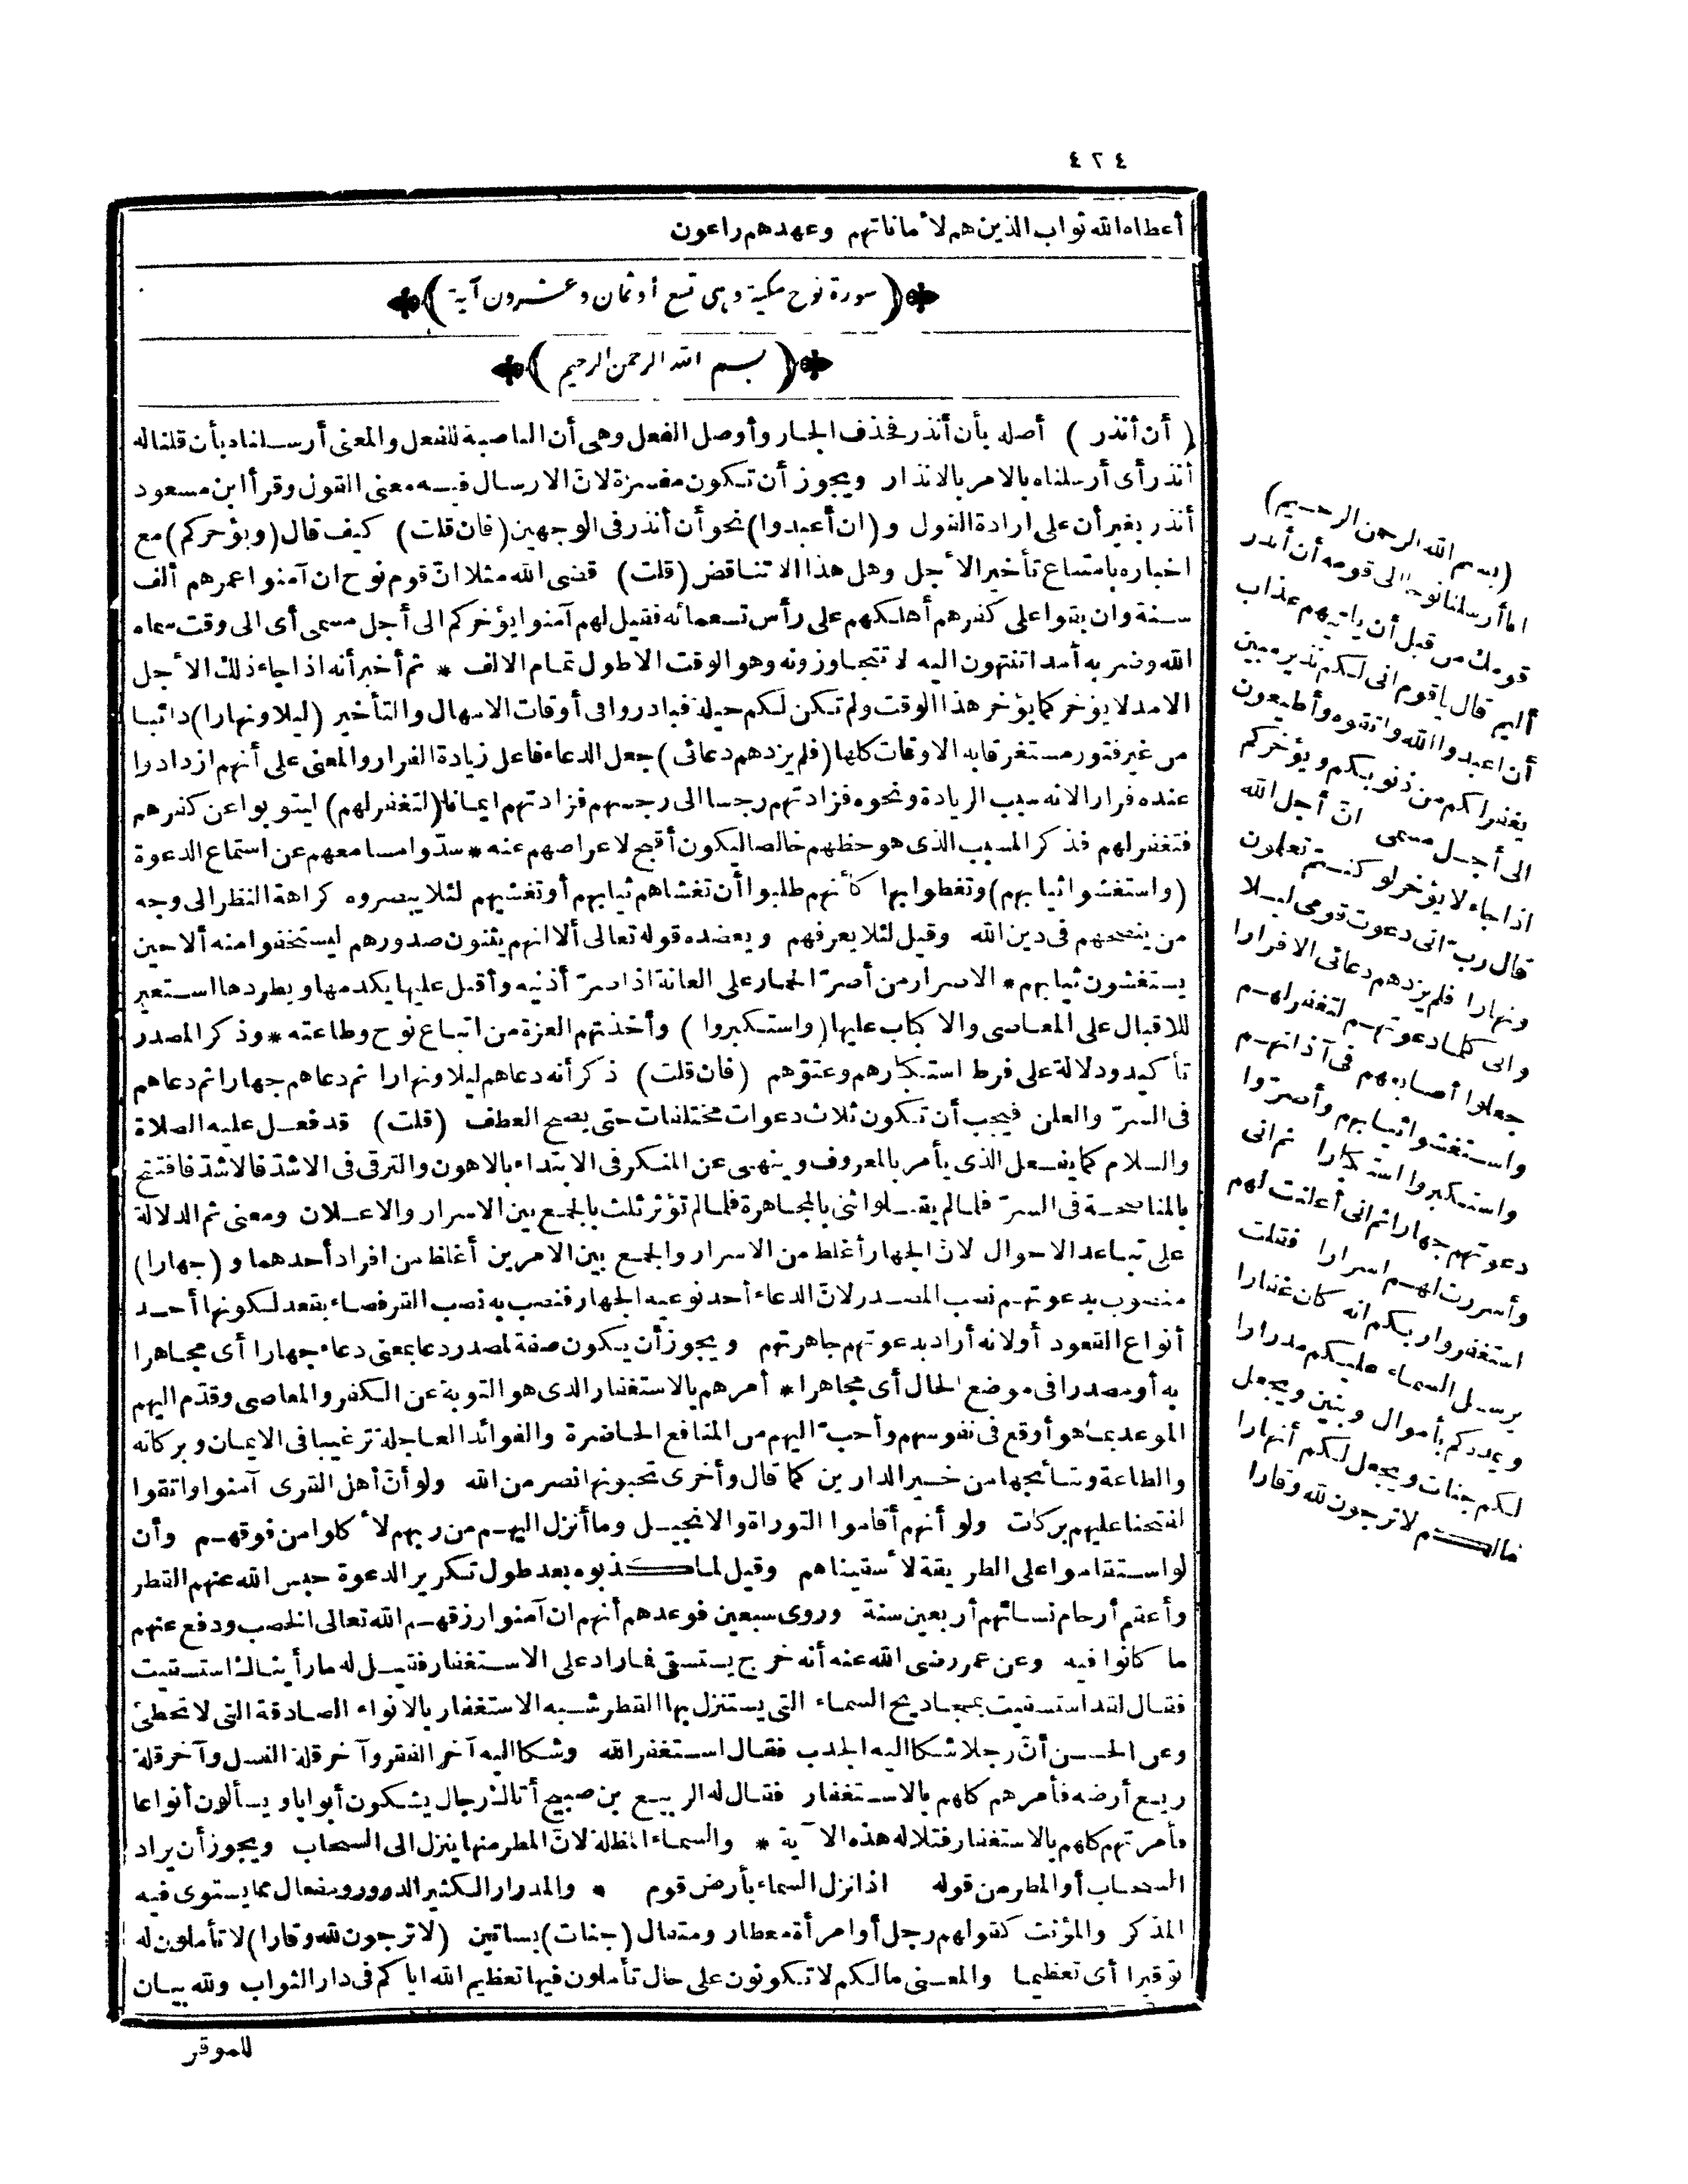 ٤٢٤
أعطاه الله ثواب الذين هم لأماناتهم وعهدهم راعون
(سورة نوح مكية وهى تسع أو ثمان وعشرون آية)
(بسم الله الرحمن الرحيم)
(أن أنذر) أصله بأن أنذر فحذف الجار وأوصل الفعل وهى أن الناصبة للفعل والمعنى أرسلناه بأن قلنا له
أنذر أى أرسلناه بالامر بالانذار ويجوز أن تكون مفسرة لانّ الارسال فيه معنى القول وقرأ ابن مسعود
أنذر بغير أن على ارادة القول و(ان أعبدوا) نحو أن أنذر فى الوجهين (فان قلت) كيف قال (ويؤخركم) مع
اخباره بامتناع تأخير الأجل وهل هذا الا تناقض (قلت) قضى الله مثلا انّ قوم نوح ان آمنوا عمرهم ألف
سنة وان بقوا على كفرهم أهلكهم على رأس تسعمائه فقيل لهم آمنوا يؤخركم الى أجل مسمى أى الى وقت سماه
الله وضربه أمدا تنتهون اليه لا تتجاوزونه وهو الوقت الاطول تمام الالف * ثم أخبر أنه اذا جاء ذلك الأجل
الامد لا يؤخر كما يؤخر هذا الوقت ولم تكن لكم حيلة فبادروا فى أوقات الامهال والتأخير (ليلا ونهارا) دائبا
من غير فتور مستغرقا به الاوقات كلها (فلم يزدهم دعائى) جعل الدعاء فاعل زيادة الفرار والمعنى على أنهم ازدادوا
عنده فرارا لانه سبب الزيادة ونحوه فزادتهم رجسا الى رجسهم فزادتهم ايمانا (لتغفر لهم) ليتوبوا عن كفرهم
فتغفر لهم فذكر المسبب الذى هو حظهم خالصا ليكون أقبح لاعراضهم عنه * سدّوا مسامعهم عن استماع الدعوة
(واستغشوا ثيابهم) وتغطوا بها كأنهم طلبوا أن تغشاهم ثيابهم أو تغشيهم لئلا يبصروه كراهة النظر الى وجه
من ينصحهم فى دين الله وقيل لئلا يعرفهم ويعضده قوله تعالى ألا انهم يثنون صدورهم ليستخفوا منه ألا حين
يستغشون ثيابهم * الاصرار من أصرّ الحمار على العانة اذا صرّ أذنيه وأقبل عليها يكدمها ويطردها استعير
للاقبال على المعاصى والاكباب عليها (واستكبروا) وأخذتهم العزة من اتباع نوح وطاعته * وذكر المصدر
تأكيد ودلالة على فرط استكبارهم وعتوّهم (فان قلت) ذكر أنه دعاهم ليلا ونهارا ثم دعاهم جهارا ثم دعاهم
فى السرّ والعلن فيجب أن تكون ثلاث دعوات مختلفات حتى يصح العطف (قلت) قد فعل عليه الصلاة
والسلام كما يفعل الذى يأمر بالمعروف وينهى عن المنكر فى الابتداء بالاهون والترقى فى الاشدّ فالاشدّ فافتتح
بالمناصحة فى السرّ فلما لم يقبلوا ثنى بالمجاهرة فلما لم تؤثر ثلث بالجمع بين الاسرار والاعلان ومعنى ثم الدلالة
على تباعد الاحوال لانّ الجهار أغلظ من الاسرار والجمع بين الامرين أغلظ من افراد أحدهما و(جهارا)
منصوب بدعوتهم نصب المصدر لانّ الدعاء أحد نوعيه الجهار فنصب به نصب القرفصاء بقعد لكونها أحد
أنواع القعود أو لانه أراد بدعوتهم جاهرتهم ويجوز أن يكون صفة لمصدر دعا بمعنى دعاء جهارا أى مجاهرا
به أو مصدرا فى موضع الحال أى مجاهرا * أمرهم بالاستغفار الذى هو التوبة عن الكفر والمعاصى وقدّم اليهم
الموعد بما هو أوقع فى نفوسهم وأحبّ اليهم من المنافع الحاضرة والفوائد العاجلة ترغيبا فى الايمان وبركاته
والطاعة ونتائجها من خير الدارين كما قال وأخرى تحبونها نصر من الله ولو أنّ أهل القرى آمنوا واتقوا
لفتحنا عليهم بركات ولو أنهم أقاموا التوراة والانجيل وما أنزل اليهم من ربهم لأكلوا من فوقهم وأن
لو استقاموا على الطريقة لأسقيناهم وقيل لما كذبوه بعد طول تكرير الدعوة حبس الله عنهم القطر
وأعقم أرحام نسائهم أربعين سنة وروى سبعين فوعدهم أنهم ان آمنوا رزقهم الله تعالى الخصب ودفع عنهم
ما كانوا فيه وعن عمر رضى الله عنه أنه خرج يستسقى فما زاد على الاستغفار فقيل له ما رأيناك استسقيت
فقال لقد استسقيت بمجاديح السماء التى يستنزل بها القطر شبه الاستغفار بالانواء الصادقة التى لا تخطئ
وعن الحسن أنّ رجلا شكا اليه الجدب فقال استغفر الله وشكا اليه آخر الفقر وآخر قلة النسل وآخر قلة
ريع أرضه فأمرهم كلهم بالاستغفار فقال له الربيع بن صبيح أتاك رجال يشكون أبوابا ويسألون أنواعا
فأمرتهم كلهم بالاستغفار فتلا له هذه الآية * والسماء المظلة لانّ المطر منها ينزل الى السحاب ويجوز أن يراد
السحاب أو المطر من قوله اذا نزل السماء بأرض قوم * والمدرار الكثير الدرور ومفعال مما يستوى فيه
المذكر والمؤنث كقولهم رجل أو امرأة معطار ومتفال (جنات) بساتين (لا ترجون لله وقارا) لا تأملون له
توقيرا أى تعظيما والمعنى مالكم لا تكونون على حال تأملون فيها تعظيم الله اياكم فى دار الثواب ولله بيان
للموقر
(بسم الله الرحمن الرحيم)
انا أرسلنا نوحا الى قومه أن أنذر
قومك من قبل أن ياتيهم عذاب
أليم قال ياقوم انى لكم نذير مبين
أن اعبدوا الله واتقوه وأطيعون
يغفر لكم من ذنوبكم ويؤخركم
الى أجل مسمى انّ أجل الله
اذا جاء لا يؤخر لو كنتم تعلمون
قال ربّ انى دعوت قومى ليلا
ونهارا فلم يزدهم دعائى الا فرارا
وانى كلما دعوتهم لتغفر لهم
جعلوا أصابعهم فى آذانهم
واستغشوا ثيابهم وأصرّوا
واستكبروا استكبارا ثم انى
دعوتهم جهارا ثم انى أعلنت لهم
وأسررت لهم اسرارا فقلت
استغفروا ربكم انه كان غفارا
يرسل السماء عليكم مدرارا
ويمددكم بأموال وبنين ويجعل
لكم جنات ويجعل لكم أنهارا
مالكم لا ترجون لله وقارا